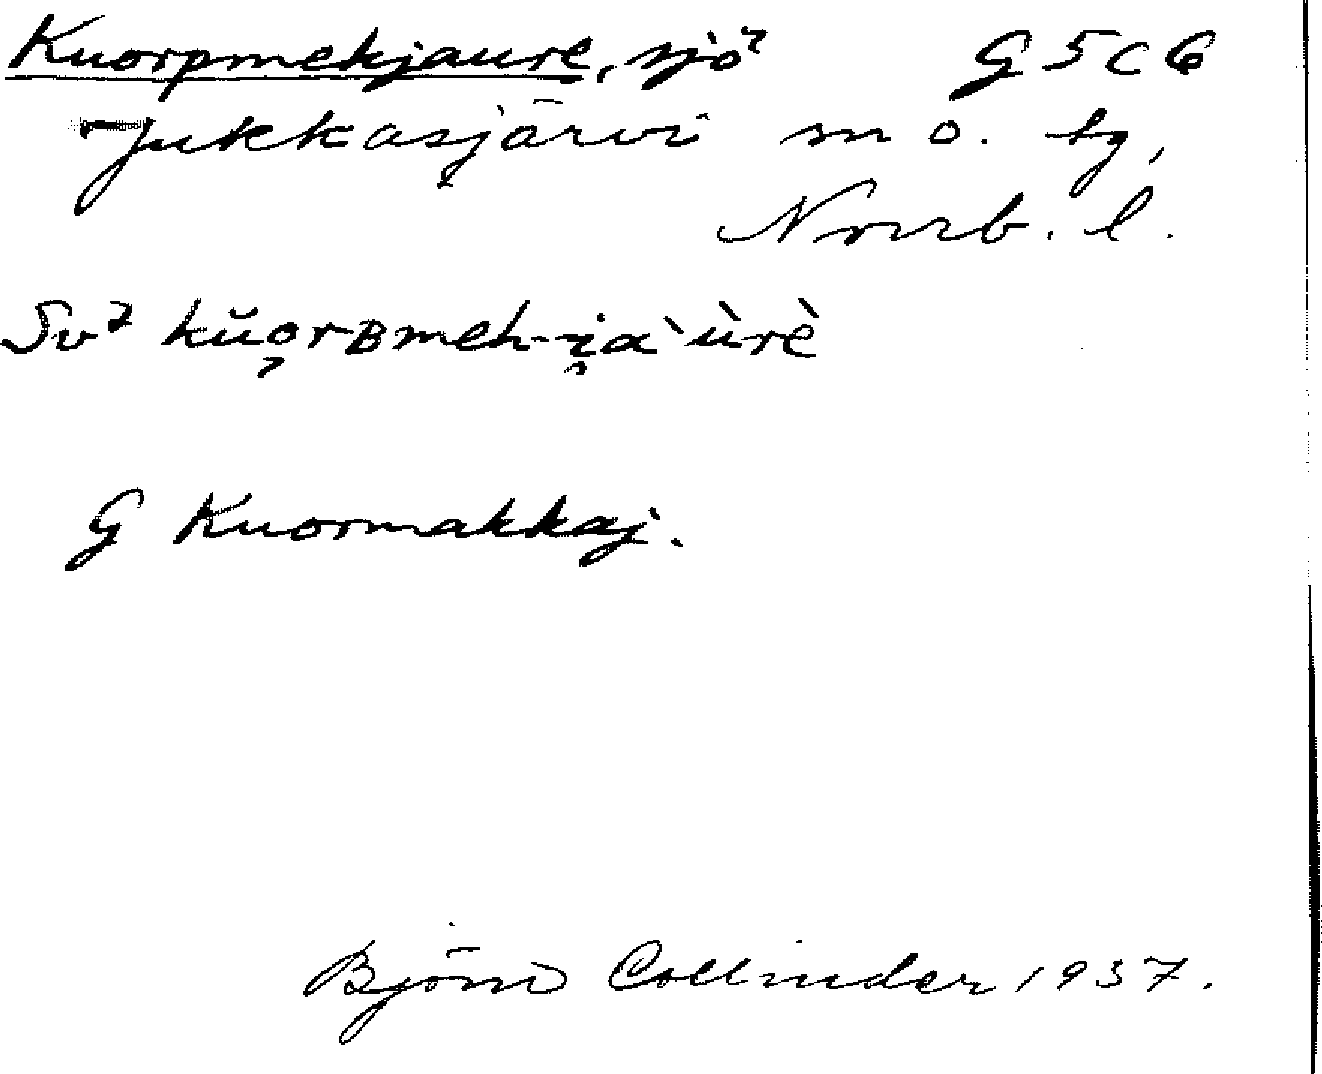 Kuorpmekjaure, sjö G 5 C 6
Jukkasjärvi sn o. tg,
Norrb. l.
Sv² kŭo̦rBmeh-i̯a`ùrè
G Kuormakkaj.
Björn Collinder 1937.